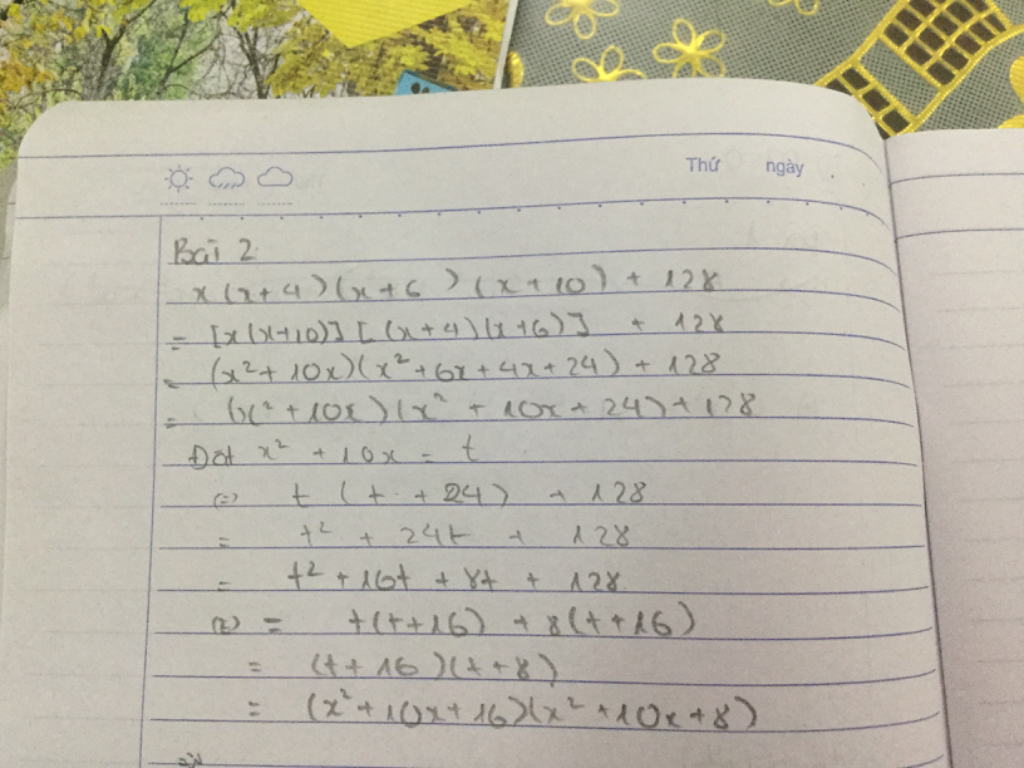 Thứ ngày
Bài 2
x(x+4)(x+6)(x+10) + 128
= [x(x+10)][(x+4)(x+6)] + 128
= (x²+10x)(x²+6x+4x+24)+128
= (x²+10x)(x²+10x+24)+128
Đặt x²+10x = t
(=) t(t+24) + 128
= t² + 24t + 128
= t²+16t+8t+128
(=) = t(t+16)+8(t+16)
= (t+16)(t+8)
= (x²+10x+16)(x²+10x+8)